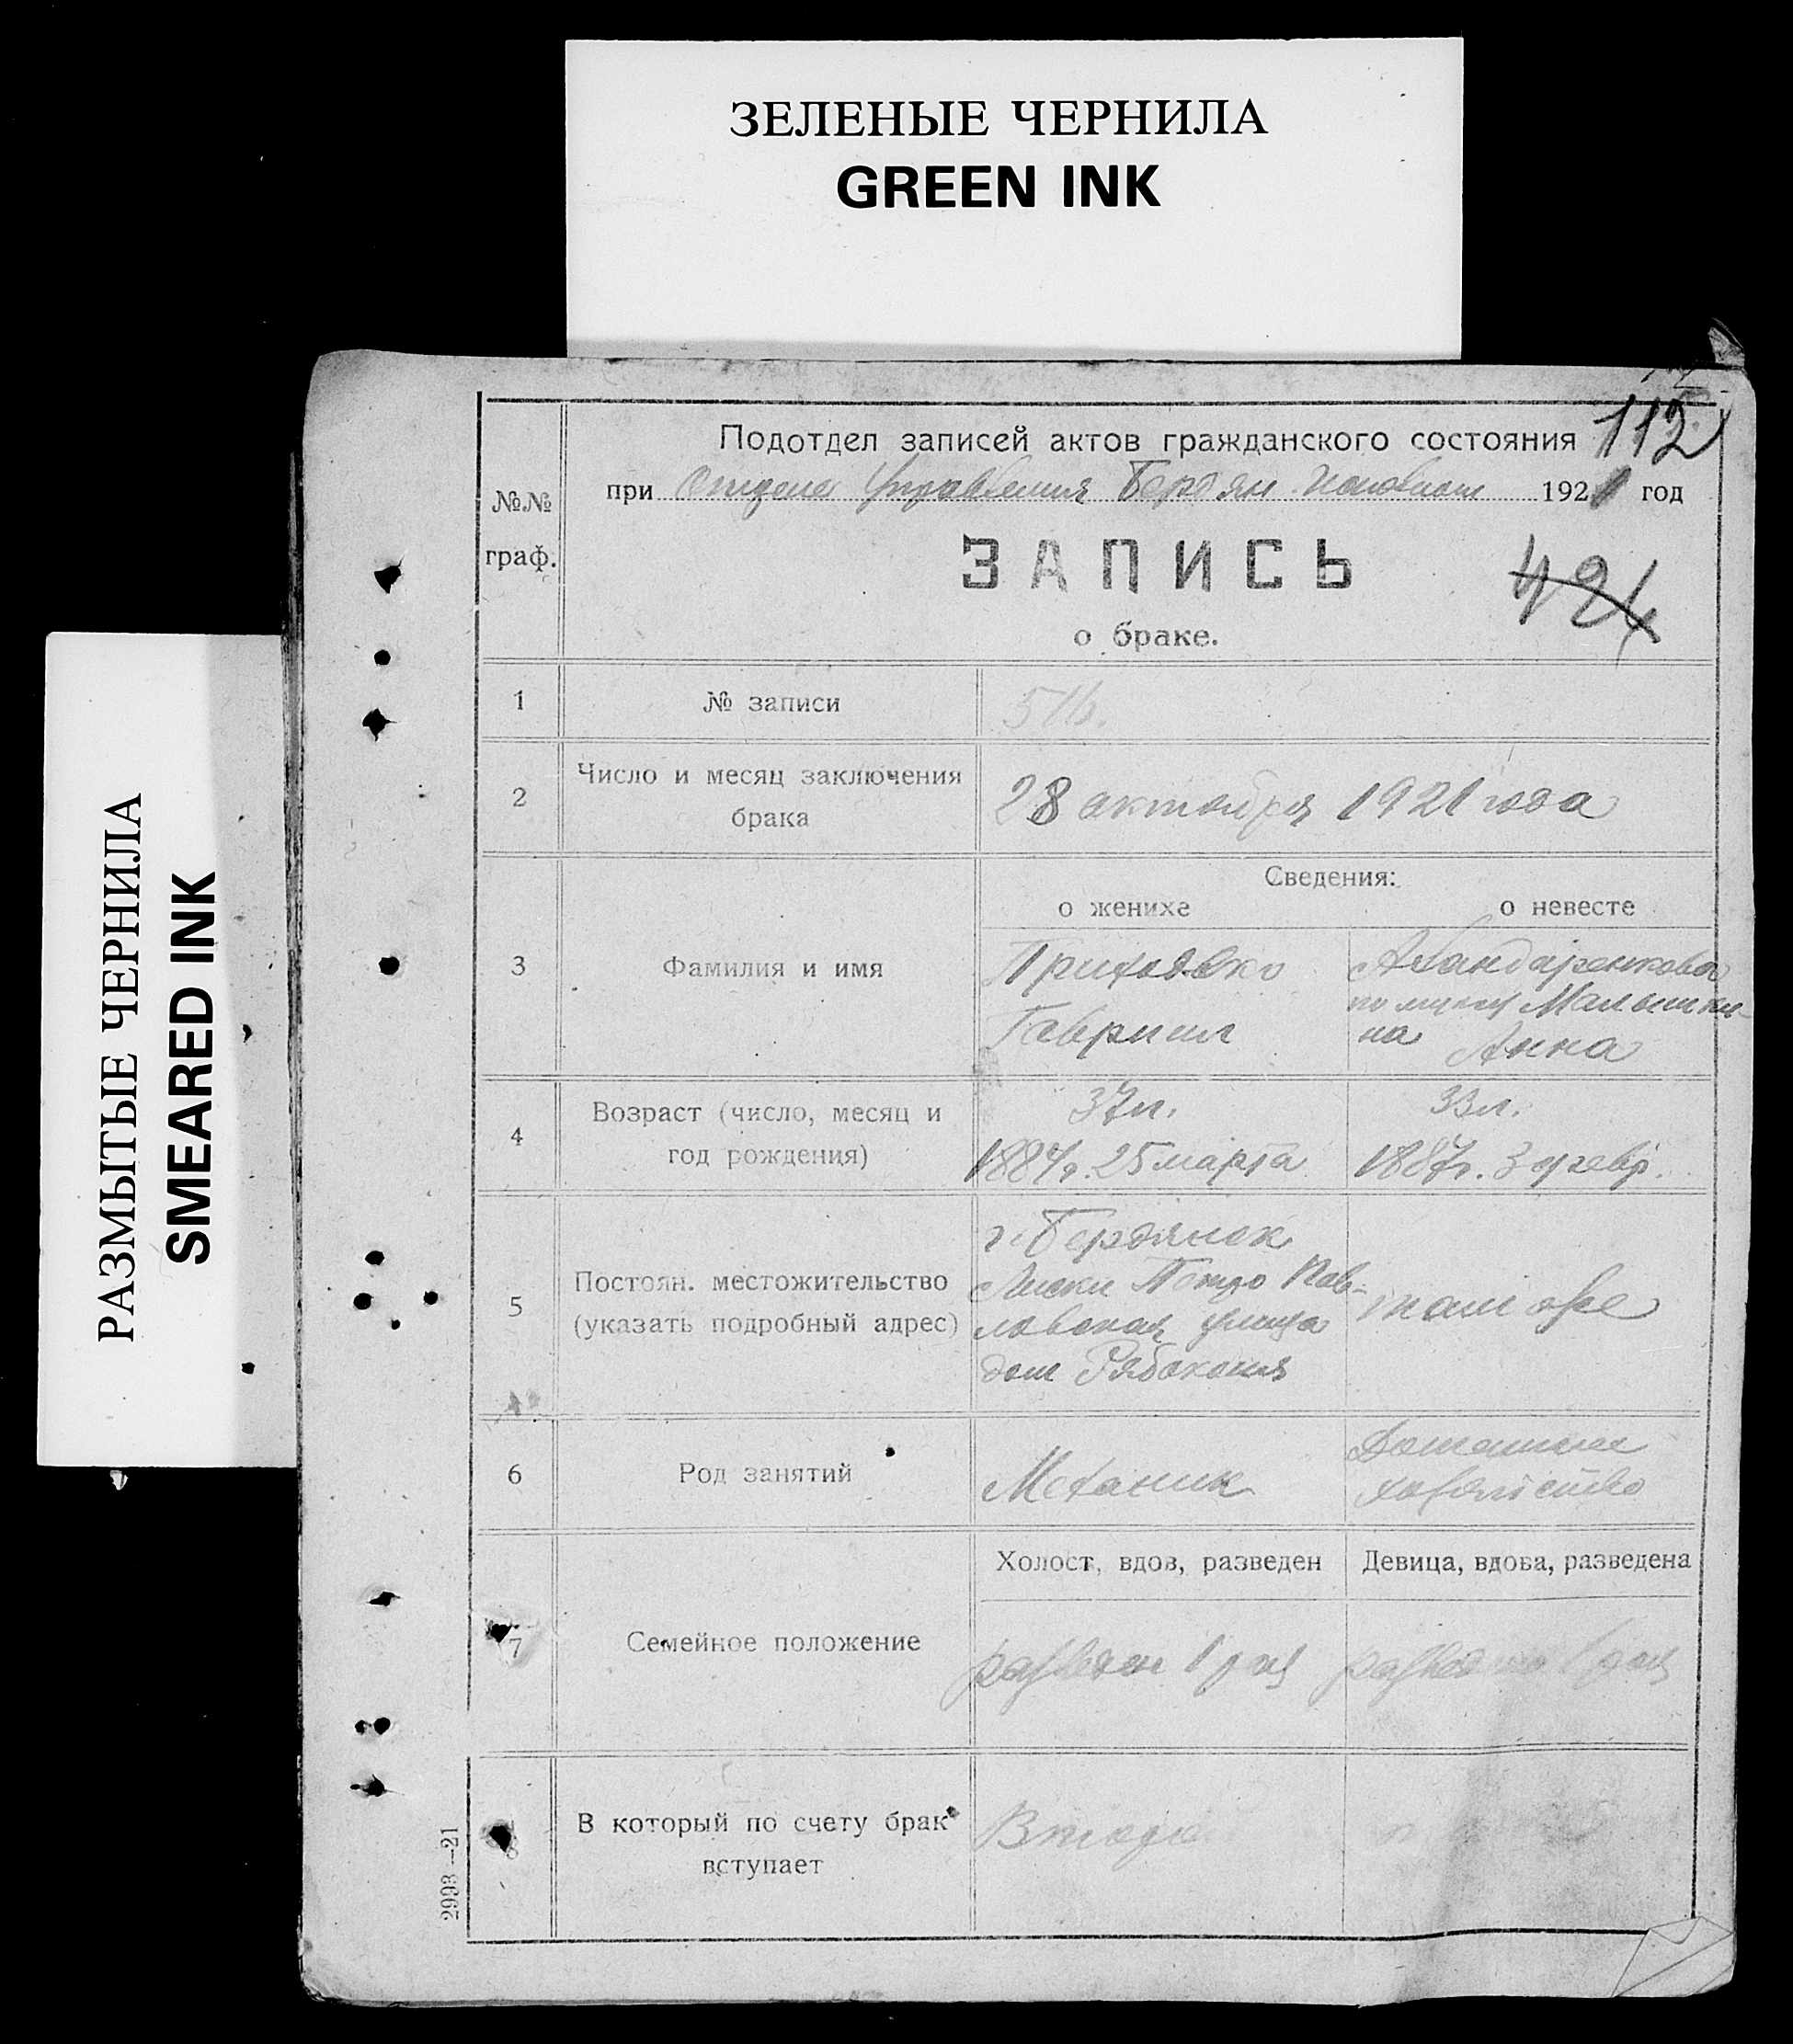 ЗЕЛЕНЫЕ ЧЕРНИЛА
GREEN INK
РАЗМЫТЫЕ ЧЕРНИЛА
SMEARED INK
112
Подотдел записей актов гражданского состояния
при Отделе Управления Бердян. Исполкома 1921 год
№№
граф.
ЗАПИСЬ
424
о браке.
1
№ записи
2
Число и месяц заключения
брака
28 октября 1921 года
Сведения:
о женихе
о невесте
3
Фамилия и имя
Приходько
Гавриил
по мужу Малышки-
на Анна
4
Возраст (число, месяц и
год рождения)
37 л.
1884 г. 25 марта
33 л.
1887 г. 3 февр.
5
Постоян. местожительство
(указать подробный адрес)
г. Бердянск
Лиски Петро Пав-
ловская улица
дом Рябоконя
там же
6
Род занятий
Механик
Домашнее
хозяйство
7
Семейное положение
Холост, вдов, разведен
Девица, вдова, разведена
разведен 1 раз
разведена 1 раз
8
В который по счету брак
вступает
2993—21